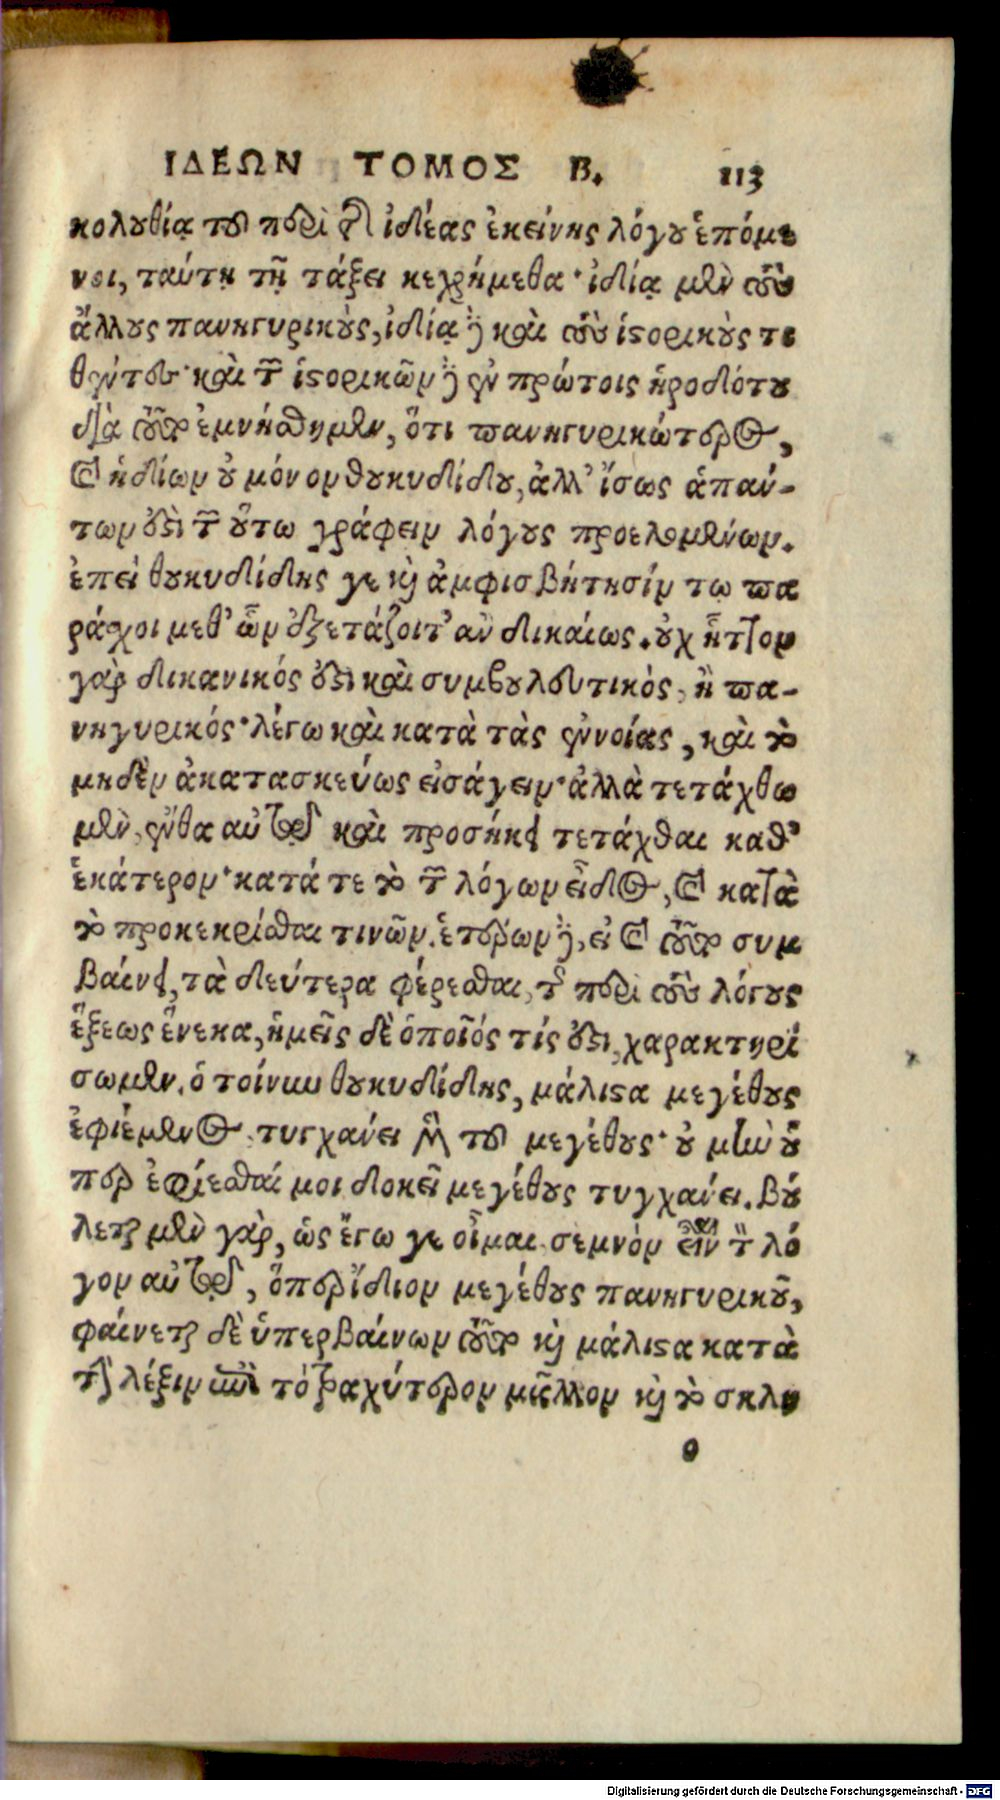 ΙΔΕΩΝ ΤΟΜΟΣ Β. 113
κολουθίᾳ τοῦ περὶ τῆς ἰδέας ἐκείνης λόγου ἑπόμε
νοι, ταύτῃ τῇ τάξει κεχρήμεθα· ἰδίᾳ μὲν τοὺς
ἄλλους πανηγυρικοὺς, ἰδίᾳ δὲ καὶ τοὺς ἱστορικοὺς τι
θέντες· καὶ τῶν ἱστορικῶν δὲ ἐν πρώτοις ἡροδότου
διὰ τοῦτο ἐμνήσθημεν, ὅτι πανηγυρικώτερος,
καὶ ἡδίων οὐ μόνον θουκυδίδου, ἀλλ' ἴσως ἁπάν-
των ἐστὶ τῶν οὕτω γράφειν λόγους προελομένων.
ἐπεὶ θουκυδίδης γε καὶ ἀμφισβήτησίν τῳ πα
ράσχοι μεθ' ὧν ἐξετάζοιτ' ἂν δικαίως. οὐχ ἧττον
γὰρ δικανικός ἐστι καὶ συμβουλευτικὸς, ἢ πα-
νηγυρικός· λέγω καὶ κατὰ τὰς ἐννοίας, καὶ τὸ
μηδὲν ἀκατασκεύως εἰσάγειν· ἀλλὰ τετάχθω
μὲν, ἔνθα αὐτὸν καὶ προσήκει τετάχθαι καθ'
ἑκάτερον· κατά τε τὸ τῶν λόγων εἶδος, καὶ κατὰ
τὸ προκεκρίσθαι τινῶν. ἑτέρων δὲ, εἰ καὶ τοῦτο συμ
βαίνει, τὰ δεύτερα φέρεσθαι, τῆς περὶ τοὺς λόγους
ἕξεως ἕνεκα, ἡμεῖς δὲ ὁποῖός τίς ἐστι, χαρακτηρί
σωμεν. ὁ τοίνυν θουκυδίδης, μάλιστα μεγέθους
ἐφιέμενος, τυγχάνει μὲν τοῦ μεγέθους· οὐ μὴν οὗ
περ ἐφίεσθαί μοι δοκεῖ μεγέθους τυγχάνει. βού
λεται μὲν γὰρ, ὡς ἔγωγε οἶμαι σεμνὸν εἶναι τὸν λό
γον αὐτοῦ, ὅπερ ἴδιον μεγέθους πανηγυρικοῦ,
φαίνεται δὲ ὑπερβαίνων τοῦτο καὶ μάλιστα κατὰ
τὴν λέξιν ἐπὶ τὸ τραχύτερον μᾶλλον καὶ τὸ σκλη
ο
Digitalisierung gefördert durch die Deutsche Forschungsgemeinschaft - DFG